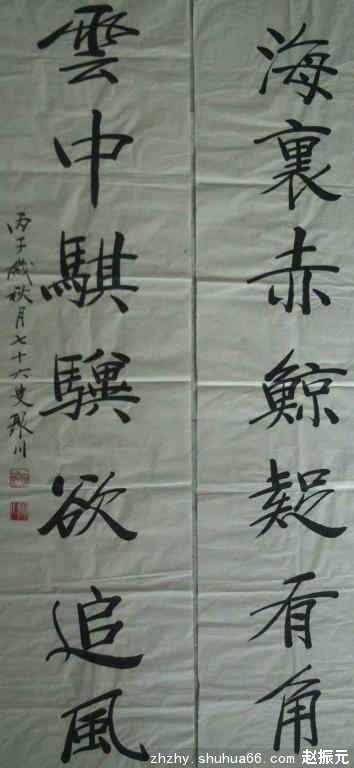 海裏赤鯨有角
雲中騏驥欲追風
丙子歲秋月七十六叟川
zhzhy.shuhua66.com 赵振元